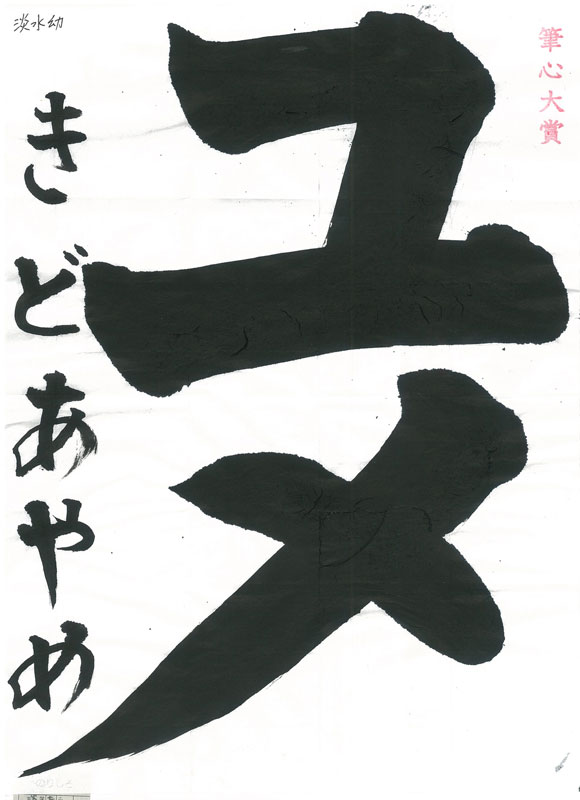 筆心大賞
ユメ
きどあやめ
淡水幼